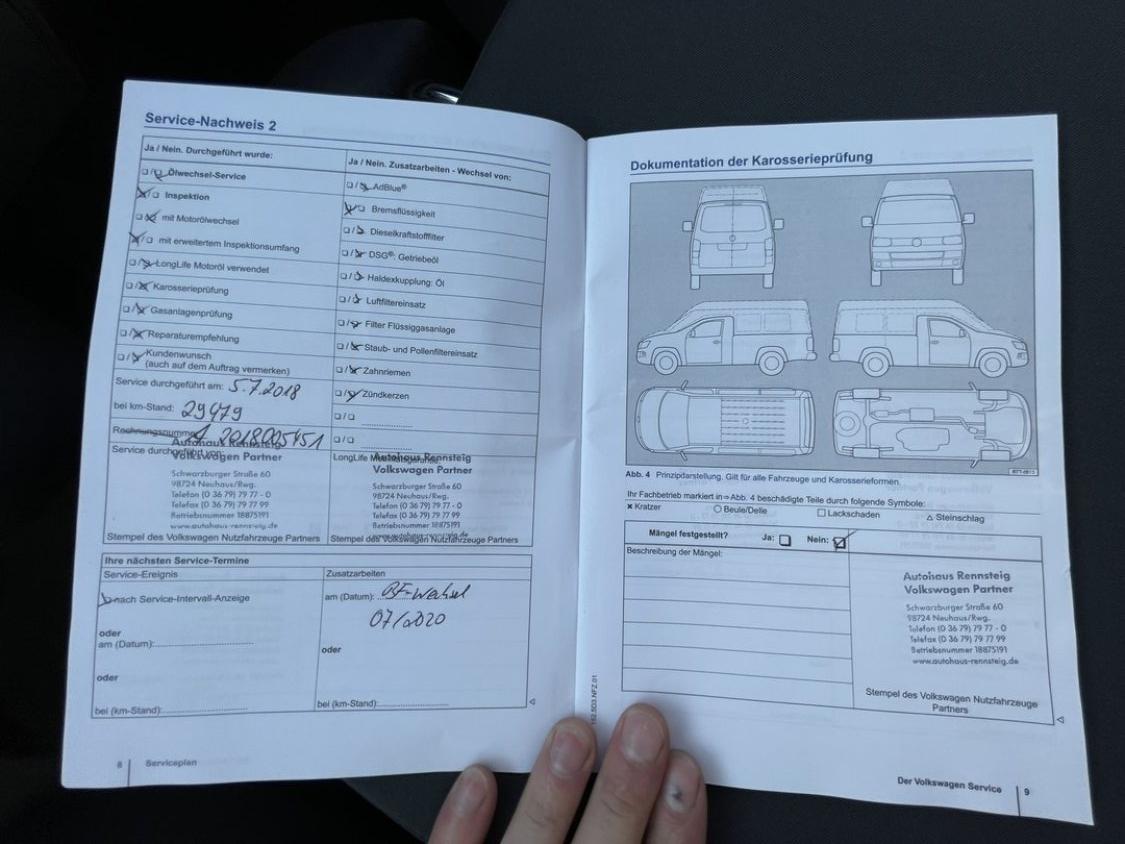 Service-Nachweis 2
Ja / Nein. Durchgeführt wurde:
❏/❏ Ölwechsel-Service
❏/❏ Inspektion
❏/❏ mit Motorölwechsel
❏/❏ mit erweitertem Inspektionsumfang
❏/❏ LongLife Motoröl verwendet
❏/❏ Karosserieprüfung
❏/❏ Gasanlagenprüfung
❏/❏ Reparaturempfehlung
❏/❏ Kundenwunsch
(auch auf dem Auftrag vermerken)
Service durchgeführt am: 5.7.2018
bei km-Stand: 29479
Rechnungsnummer
Service durchgeführt von:
Autohaus Rennsteig
Volkswagen Partner
Schwarzburger Straße 60
98724 Neuhaus/Rwg.
Telefon (0 36 79) 79 77 - 0
Telefax (0 36 79) 79 77 99
Betriebsnummer 18875191
www.autohaus-rennsteig.de
Stempel des Volkswagen Nutzfahrzeuge Partners
Ja / Nein. Zusatzarbeiten - Wechsel von:
❏/❏ AdBlue®
❏/❏ Bremsflüssigkeit
❏/❏ Dieselkraftstofffilter
❏/❏ DSG®: Getriebeöl
❏/❏ Haldexkupplung: Öl
❏/❏ Luftfiltereinsatz
❏/❏ Filter Flüssiggasanlage
❏/❏ Staub- und Pollenfiltereinsatz
❏/❏ Zahnriemen
❏/❏ Zündkerzen
❏/❏
❏/❏
LongLife
Autohaus Rennsteig
Volkswagen Partner
Schwarzburger Straße 60
98724 Neuhaus/Rwg.
Telefon (0 36 79) 79 77 - 0
Telefax (0 36 79) 79 77 99
Betriebsnummer 18875191
www.autohaus-rennsteig.de
Stempel des Volkswagen Nutzfahrzeuge Partners
Ihre nächsten Service-Termine
Service-Ereignis
❏ nach Service-Intervall-Anzeige
oder
am (Datum):
oder
bei (km-Stand):
Zusatzarbeiten
am (Datum): BF-Wechsel
07/2020
oder
bei (km-Stand):
8 Serviceplan
Dokumentation der Karosserieprüfung
Abb. 4 Prinzipdarstellung. Gilt für alle Fahrzeuge und Karosserieformen.
Ihr Fachbetrieb markiert in ⇒ Abb. 4 beschädigte Teile durch folgende Symbole:
× Kratzer ○ Beule/Delle □ Lackschaden △ Steinschlag
Mängel festgestellt? Ja: ❏ Nein: ❏
Beschreibung der Mängel:
Autohaus Rennsteig
Volkswagen Partner
Schwarzburger Straße 60
98724 Neuhaus/Rwg.
Telefon (0 36 79) 79 77 - 0
Telefax (0 36 79) 79 77 99
Betriebsnummer 18875191
www.autohaus-rennsteig.de
Stempel des Volkswagen Nutzfahrzeuge
Partners
Der Volkswagen Service 9